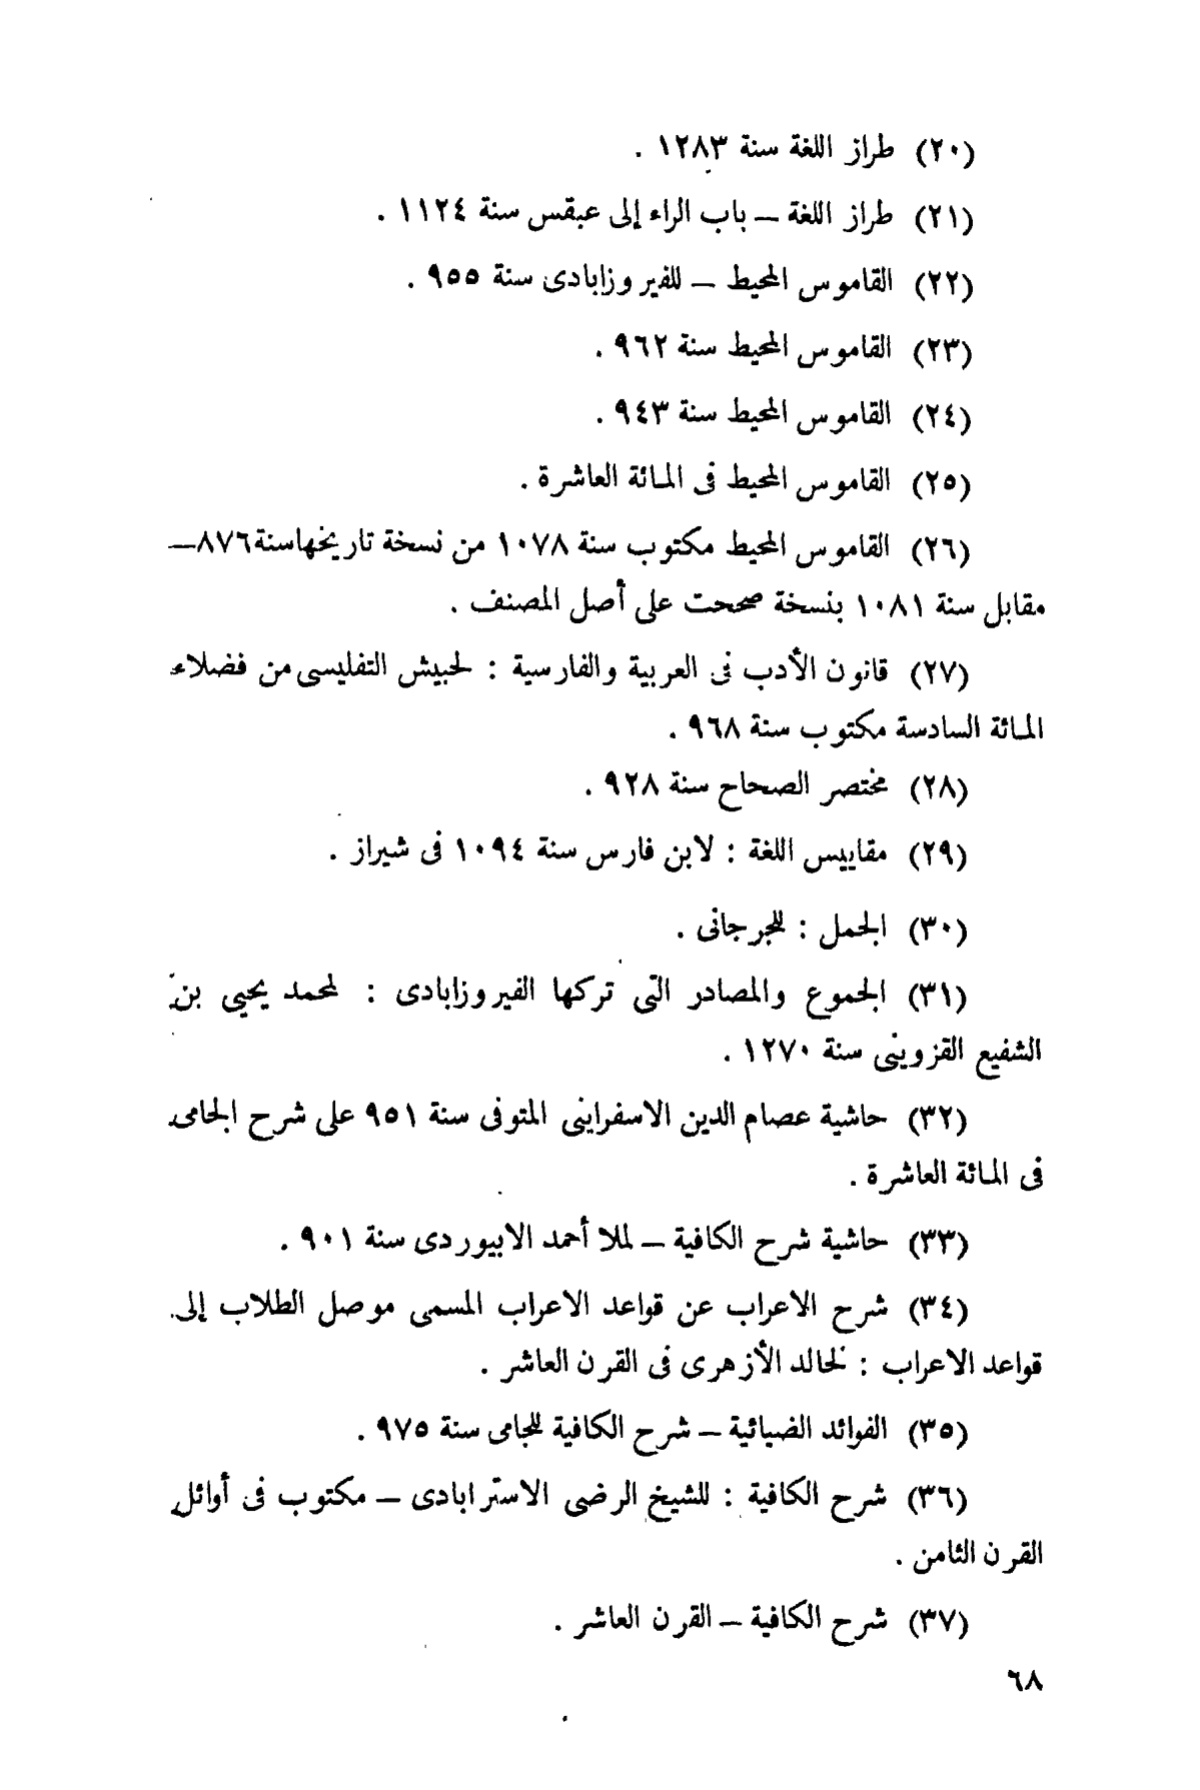 (٢٠) طراز اللغة سنة ١٢٨٣ .
(٢١) طراز اللغة – باب الراء إلى عبقس سنة ١١٢٤ .
(٢٢) القاموس المحيط – للفيروزابادى سنة ٩٥٥ .
(٢٣) القاموس المحيط سنة ٩٦٢ .
(٢٤) القاموس المحيط سنة ٩٤٣ .
(٢٥) القاموس المحيط فى المائة العاشرة .
(٢٦) القاموس المحيط مكتوب سنة ١٠٧٨ من نسخة تاريخها سنة ٨٧٦ –
مقابل سنة ١٠٨١ بنسخة صححت على أصل المصنف .
(٢٧) قانون الأدب فى العربية والفارسية : لحبيش التفليسى من فضلاء
المائة السادسة مكتوب سنة ٩٦٨ .
(٢٨) مختصر الصحاح سنة ٩٢٨ .
(٢٩) مقاييس اللغة : لابن فارس سنة ١٠٩٤ فى شيراز .
(٣٠) الجمل : للجرجانى .
(٣١) الجموع والمصادر التى تركها الفيروزابادى : لمحمد يحيى بن
الشفيع القزوينى سنة ١٢٧٠ .
(٣٢) حاشية عصام الدين الاسفراينى المتوفى سنة ٩٥١ على شرح الجامى
فى المائة العاشرة .
(٣٣) حاشية شرح الكافية – لملا أحمد الابيوردى سنة ٩٠١ .
(٣٤) شرح الاعراب عن قواعد الاعراب المسمى موصل الطلاب إلى
قواعد الاعراب : لخالد الأزهرى فى القرن العاشر .
(٣٥) الفوائد الضيائية – شرح الكافية للجامى سنة ٩٧٥ .
(٣٦) شرح الكافية : للشيخ الرضى الاسترابادى – مكتوب فى أوائل
القرن الثامن .
(٣٧) شرح الكافية – القرن العاشر .
٦٨